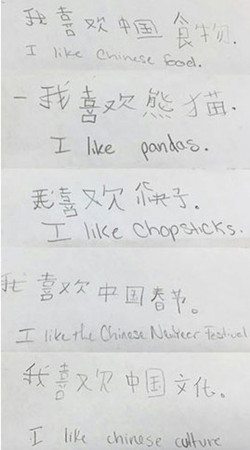 我喜欢中国食物.
I like Chinese food.
一我喜欢熊猫.
I like pandas.
我喜欢筷子.
I like Chopsticks.
我喜欢中国春节。
I like the Chinese Newyeer Festival
我喜欢中国文化。
I like chinese culture